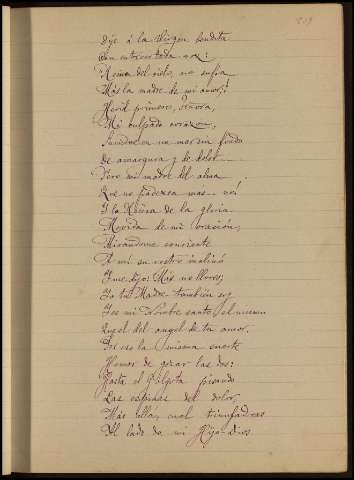 Dije á la Virgen bendita
Con entrecortada voz:
"Reina del cielo, no sufra
Más la madre de mi amor;
Herid primero, Señora,
Mi culpado corazon,
en un mar sin fondo
De amargura y de dolor
Pero mi madre del alma
Que no padezca mas no!
Y la Reina de la gloria
Movida de mi oracion,
Mirandome sonriente
A mi su rostro inclinó
Y me dijo: Más no llores;
Yo tu Madre tambien soy
Y es mi Nombre santo el mismo
Que el del angel de tu amor.
Por eso la misma suerte
Hemos de gozar las dos:
Hasta el Gólgota pisando
Las espinas del dolor,
Más allá, cual triunfadoras
Al lado de mi Hijo-Dios